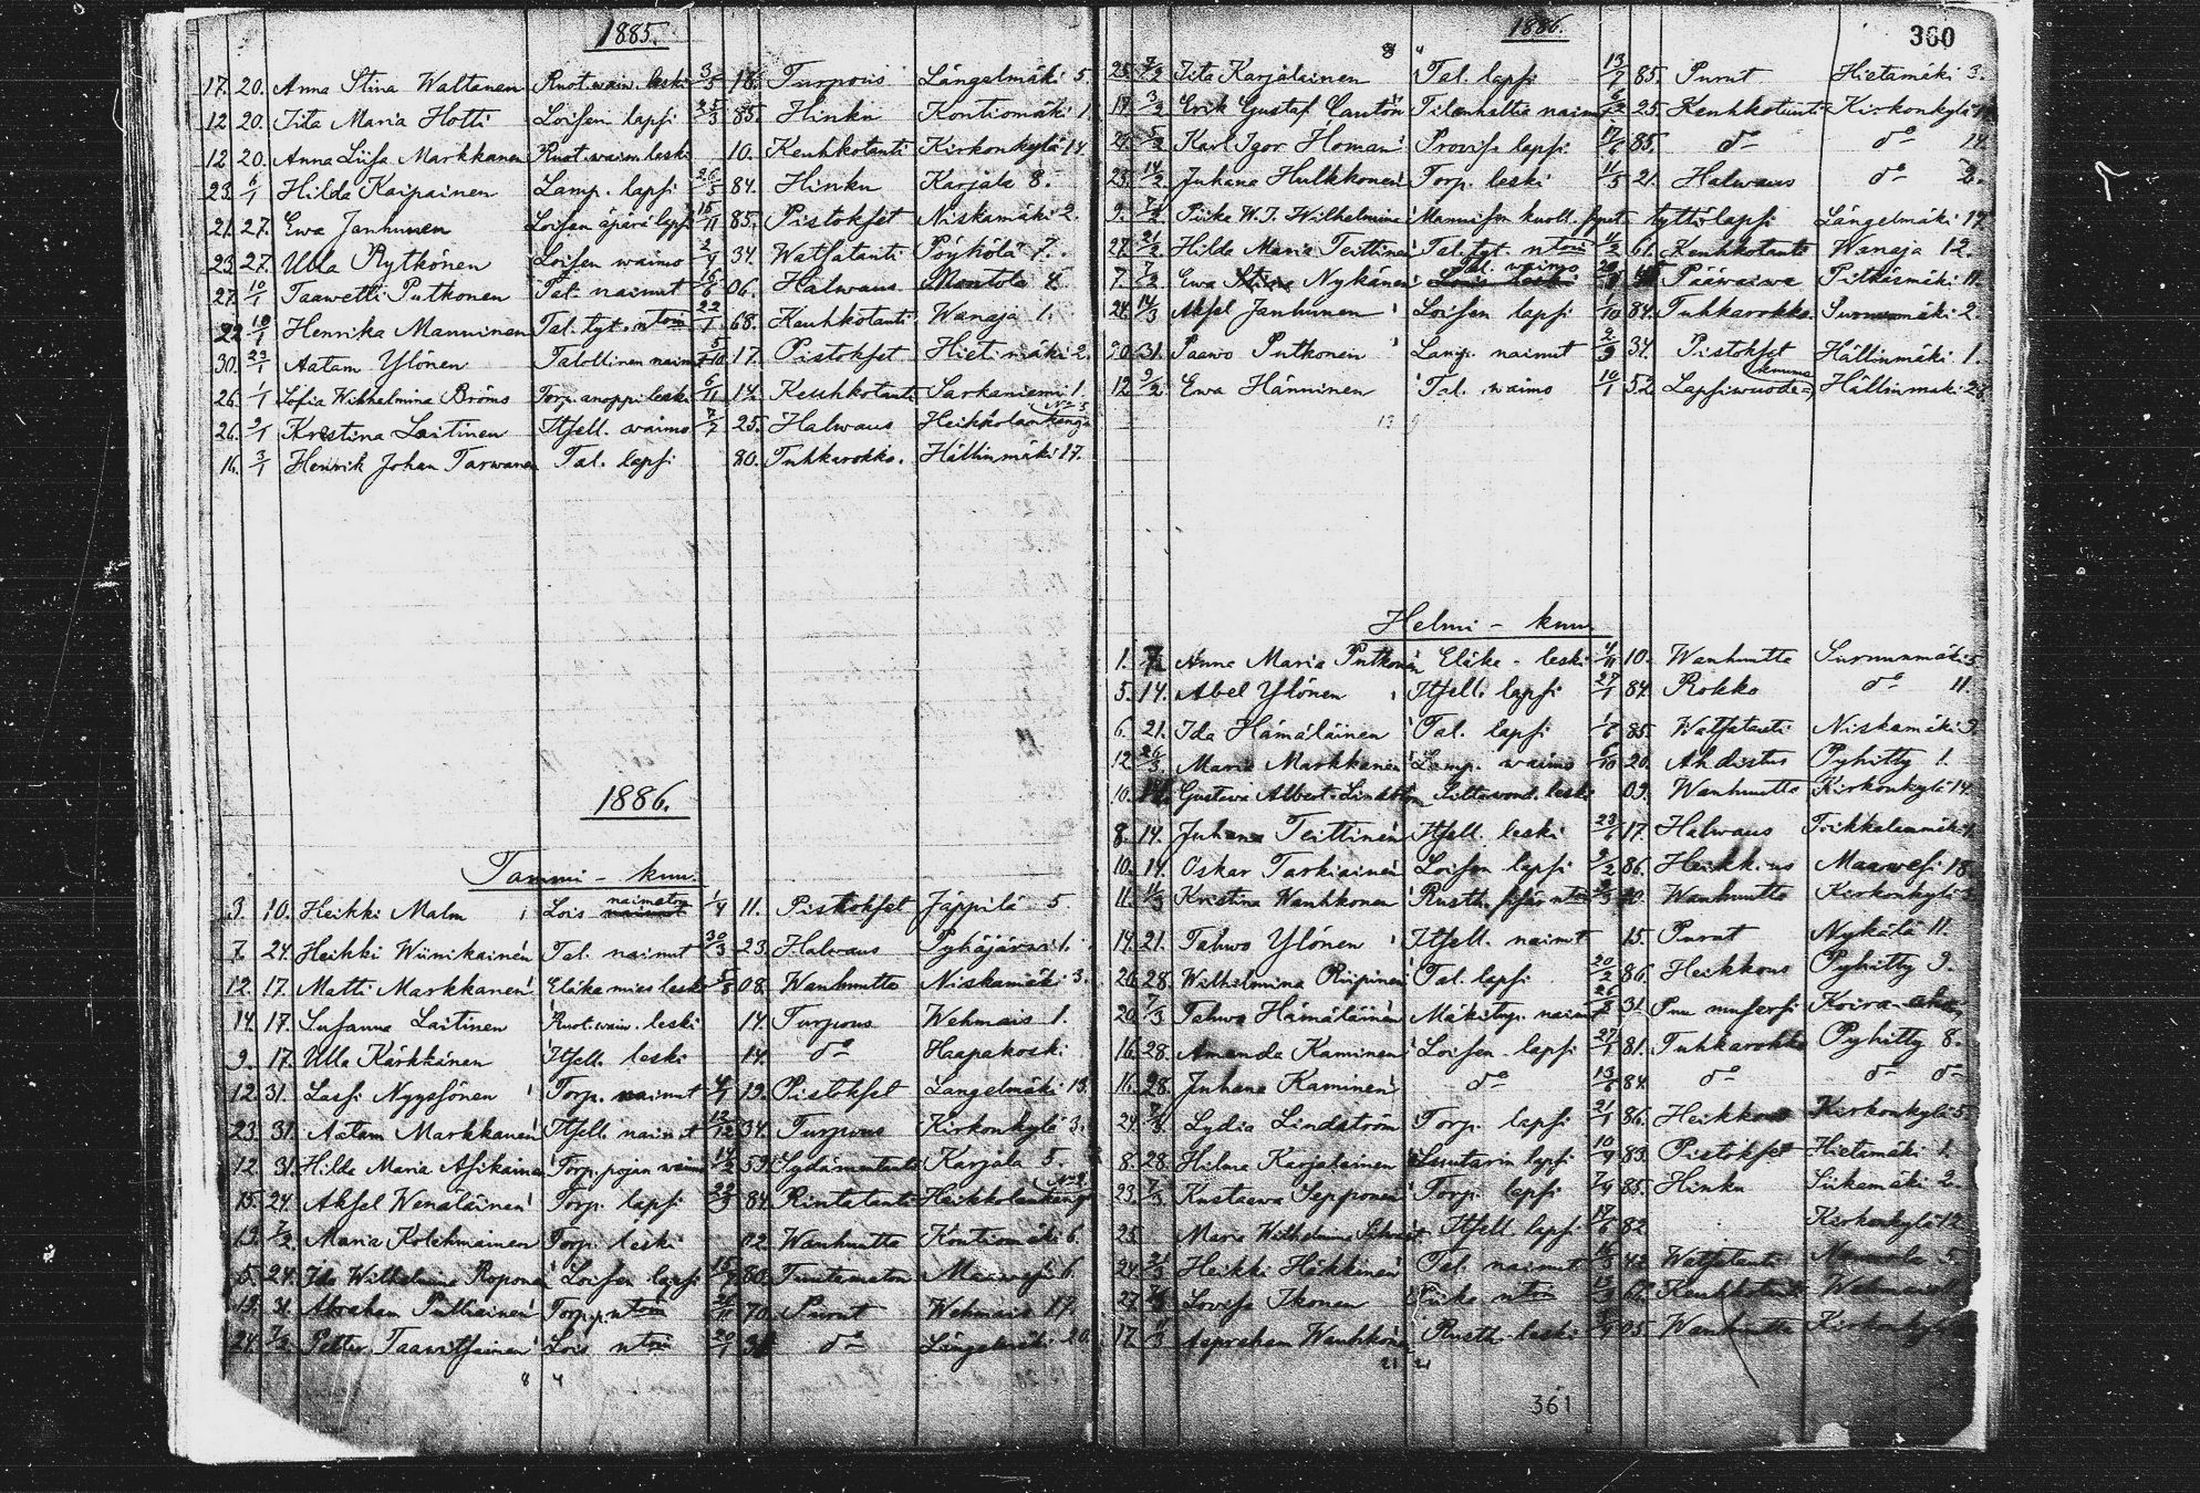 1885.
17. 20. Anna Stina Waltanen Ruot. waiv. leski 3/5 16. Turpous Längelmäki 5.
12 20. Iita Maria Hotti Loisen lapsi 25/3 85. Hinku Kontiomäki 1.
12 20. Anna Liisa Markkanen Ruot. waiv. leski 10. Keuhkotauti Kirkonkylä 14.
23. 6/1 Hilda Kaipainen Lamp. lapsi 26/5 84. Hinku Karjala 8.
21. 27. Ewa Janhunen Loisen äpärä lapsi 15/11 85. Pistokset Niskamäki 2.
23. 27. Ulla Rytkönen Loisen waimo 2/9 34. Watsatauti Pöyhölä 7.
27. 10/1 Taawetti Putkonen Tal. nainut 16/6 06. Halwaus Montola 4.
22. 10/1 Henrika Manninen Tal. tyt. ntoin 22/1 68. Keuhkotauti Wanaja 1.
30. 23/1 Aatam Ylönen Talollinen nainut 17. Pistokset Hietamäki 2.
26. 1/1 Sofia Wilhelmina Bröms Torp. anoppi leski 6/11 Keuhkotauti Sarkaniemi 1.
26. 2/1 Kristina Laitinen Itsell. waimo 25. Halwaus Heikkolankangas
16. 3/1 Henrik Johan Tarwanen Tal. lapsi 80. Tuhkarokko. Hällinmäki 17.
1886.
Tammi - kuu.
3. 10. Heikki Malm Lois naimaton 1/4 11. Pistokset Jäppilä 5.
7. 24. Heikki Wiinikainen Tal. nainut 30/3 23. Halwaus Pyhäjärwi 1.
12. 17. Matti Markkanen Eläke mies leski 5/8 08. Wanhuutta Niskamäki 3.
14. 17. Susanna Laitinen Ruot. waiv. leski 14. Turpous Wehmais 1.
9. 17. Ulla Kärkkänen Itsell. leski 14. do Haapakoski
12. 31. Lassi Nyyssönen Torp. nainut 19. Pistokset Längelmäki 13.
23. 31. Aatam Markkanen Itsell. nainut 12/12 34. Turpous Kirkonkylä 3.
12. 31. Hilda Maria Asikainen Torp. pojan waimo 59. Sydämentauti Karjala 5.
15. 24. Aksel Wenäläinen Torp. lapsi 22/3 84. Rintatauti Heikkolankangas
13. 7/2 Maria Kolehmainen Torp. leski 02. Wanhuutta Kontiomäki 6.
5. 24. Ida Wilhelmina Roponen Loisen lapsi 80. Tuntematon Maawesi 6.
19. 31. Abraham Pulliainen Torp. p. ntoin 70. Purut Wehmais 17.
24. 7/2 Petter Taawitsainen Lois ntoin 20/1 do Längelmäki 20.
8 4
1886.
360
9 4
25. 7/2 Iita Karjalainen Tal. lapsi 13/7 85. Purut Hietamäki 3.
19. 3/2 Erik Gustaf Cantón Tilanhaltia nainut 25. Keuhkotauti Kirkonkylä
5/2 Karl Igor Homan Provis. lapsi 17/6 85. do do 14.
23. 14/2 Juhana Hulkkonen Torp. leski 11/5 21. Halwaus do 2.
9. 7/2 Piika W. J. Wilhelmina Mannisen kuoll. synt. tyttölapsi Längelmäki 17
27. 21/2 Hilda Maria Teittinen Tal. tyt. ntoin 4/2 61. Keuhkotauti Wanaja 12.
7. 7/2 Ewa Stina Nykänen Tal. waimo Pääwaiwa Pitkäsmäki 11.
24. 14/3 Aksel Janhunen Loisen lapsi 1/10 84. Tuhkarokko. Surnumäki 2.
20. 31. Paawo Putkonen Lamp. nainut 2/9 34. Pistokset Hällinmäki 1.
12. 9/2 Ewa Hänninen Tal. waimo 10/1 52. Lapsiwuode= kuume Hällinmäki 26.
13 9
Helmi - kuu
1. 7. Anna Maria Putkonen Eläke - leski 4/11 10. Wanhuutta Surnumäki 5.
5. 14. Abel Ylönen Itsell. lapsi 27/1 84. Rokko do 11.
6. 21. Ida Hämäläinen Tal. lapsi 1/6 85. Watsatauti Niskamäki 3.
12 26/3 Maria Markkanen Lamp. waimo 20. Ahdistus Pyhitty 1.
10. 14. Gustava Albert. Lindström leski 09. Wanhuutta Kirkonkylä 14.
8. 14. Juhana Teittinen Itsell. leski 23/6 17. Halwaus Tiikkalanmäki
10. 14. Oskar Tarkiainen Loisen lapsi 9/2 86. Heikkous Maawesi 18.
11. 14/3 Kristina Wanhkonen Rusth. sisar ntoin Wanhuutta Kirkonkylä 3.
14. 21. Tahwo Ylönen Itsell. nainut 15. Purut Nykälä 11.
26. 28. Wilhelmina Riipinen Tal. lapsi 20/2 86. Heikkous Pyhitty 9.
20. 7/3 Tahwo Hämäläinen Mäkitup. nainut 31. Puu musersi Koira-aho
16. 28. Amanda Kaminen Loisen - lapsi 27/1 81. Tuhkarokko Pyhitty 8.
16. 28. Juhana Kaminen do 13/6 84. do do do
24. 7/3 Lydia Lindström Torp. lapsi 21/1 86. Heikkous Kirkonkylä 5.
8. 28. Hilma Karjalainen Suutarin lapsi 10/9 83. Pistokset Hietamäki 1.
23. 7/3 Kustaawa Sepponen Torp. lapsi 7/9 85. Hinku Siikamäki 2.
25. Maria Wilhelmina Itsell. lapsi 17/6 82 Kirkonkylä 12
24. 21/3 Heikki Häkkinen Tal. nainut 42 Watsatauti 5.
27. Lovisa Ikonen Piika ntoin Keuhkotauti
17. Aapraham Wanhkonen Rusth. leski 05. Wanhuutta Kirkonkylä
21 21
361